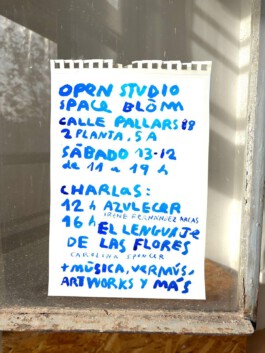 OPEN STUDIO
SPACE BLÖMM
CALLE PALLARS 88
2 PLANTA, 5A
SÁBADO 13-12
de 11 a 19 h
CHARLAS:
12 h AZULECER
IRENE FERNÁNDEZ ARCAS
16 h EL LENGUAJE
DE LAS FLORES
CAROLINA SPENCER
+ MÚSICA, VERMÚS,
ARTWORKS Y MÁS